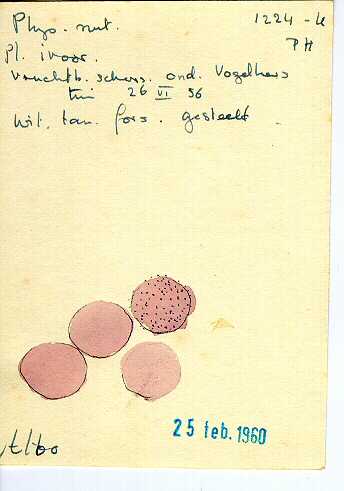 Phys. nut. 1224-4
PH
pl. ivoor.
vruchtb. schors. ond. Vogelkers
tuin 26 VI 56
wit. tan. fors. gesteeld
25 feb. 1960